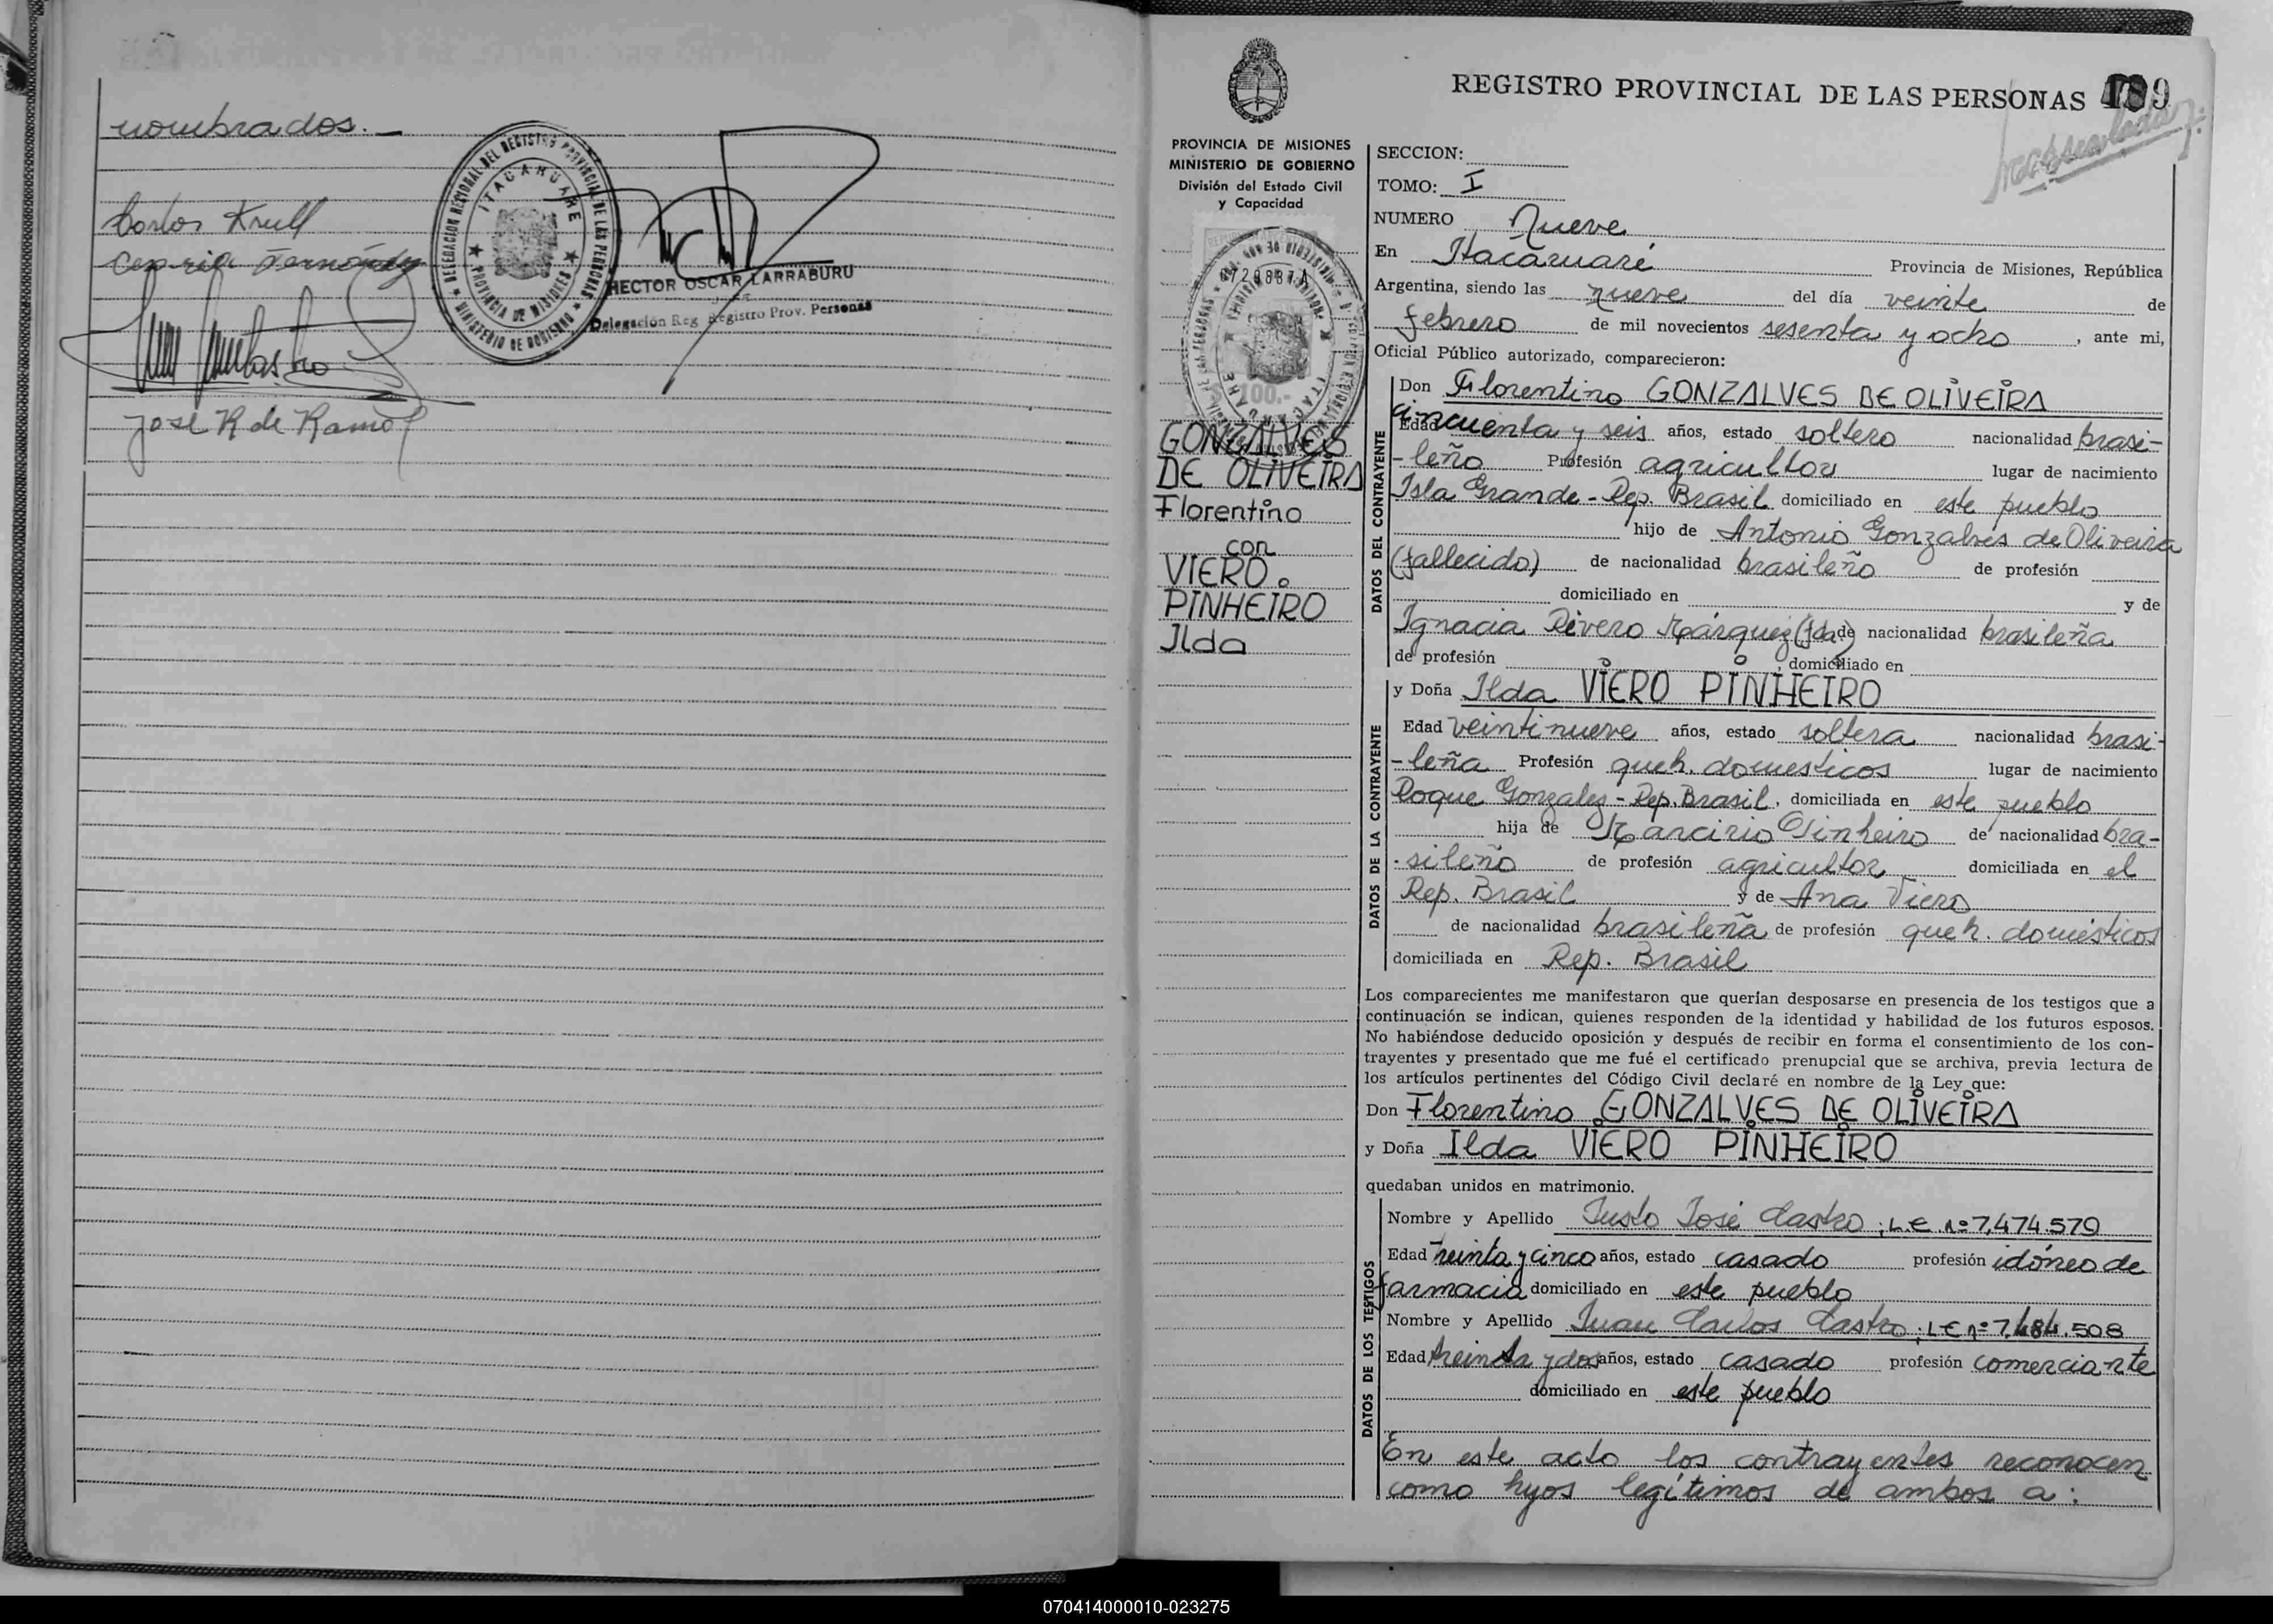 nombrados. _
Carlos Krull
Castro
José R de Ramo
DELEGACION REGIONAL DEL REGISTRO PROVINCIAL DE LAS PERSONAS
ITACARUARE
PROVINCIA DE MISIONES
MINISTERIO DE GOBIERNO
HECTOR OSCAR LARRABURU
Delegación Reg. Registro Prov. Personas
REGISTRO PROVINCIAL DE LAS PERSONAS 9
PROVINCIA DE MISIONES
MINISTERIO DE GOBIERNO
División del Estado Civil
y Capacidad
GONZALVES
DE OLIVEIRA
Florentino
con
VIERO
PINHEIRO
Ilda
SECCION:
TOMO: I
NUMERO Nueve
En Itacaruaré Provincia de Misiones, República
Argentina, siendo las nueve del día veinte de
febrero de mil novecientos sesenta y ocho, ante mi,
Oficial Público autorizado, comparecieron:
DATOS DEL CONTRAYENTE
Don Florentino GONZALVES DE OLIVEIRA
Edad cincuenta y seis años, estado soltero nacionalidad brasi-
-leño Profesión agricultor lugar de nacimiento
Isla Grande - Rep. Brasil domiciliado en este pueblo
hijo de Antonio Gonzalves de Oliveira
(fallecido) de nacionalidad brasileño de profesión
domiciliado en y de
Ignacia Rivero Márquez (fda) de nacionalidad brasileña
de profesión , domiciliado en
DATOS DE LA CONTRAYENTE
y Doña Ilda VIERO PINHEIRO
Edad veintinueve años, estado soltera nacionalidad brasi-
-leña Profesión queh. domésticos lugar de nacimiento
Roque Gonzalez - Rep. Brasil, domiciliada en este pueblo
hija de Marcirio Pinheiro de nacionalidad bra-
-sileño de profesión agricultor domiciliada en el
Rep. Brasil y de Ana Viero
de nacionalidad brasileña de profesión queh. domésticos
domiciliada en Rep. Brasil
Los comparecientes me manifestaron que querían desposarse en presencia de los testigos que a
continuación se indican, quienes responden de la identidad y habilidad de los futuros esposos.
No habiéndose deducido oposición y después de recibir en forma el consentimiento de los con-
trayentes y presentado que me fué el certificado prenupcial que se archiva, previa lectura de
los artículos pertinentes del Código Civil declaré en nombre de la Ley que:
Don Florentino GONZALVES DE OLIVEIRA
y Doña Ilda VIERO PINHEIRO
quedaban unidos en matrimonio.
DATOS DE LOS TESTIGOS
Nombre y Apellido Justo José Castro; L.E nº 7.474.579
Edad treinta y cinco años, estado casado profesión idóneo de
farmacia domiciliado en este pueblo
Nombre y Apellido Juan Carlos Castro; L.E nº 7.484.508
Edad treinta y dos años, estado casado profesión comerciante
domiciliado en este pueblo
En este acto los contrayentes reconocen
como hijos legítimos de ambos a:
070414000010-023275